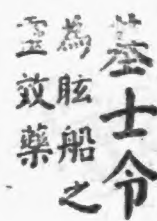 士令
為眩船之
靈效藥